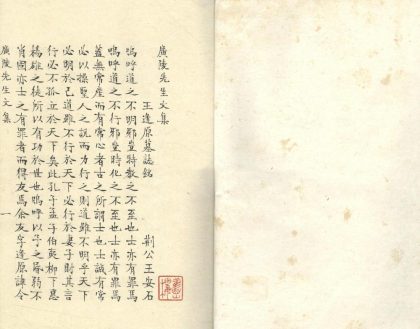 廣陵先生文集
王逢原墓誌銘
荆公王安石
嗚呼道之不明邪豈特教之不至也士亦有罪焉
嗚呼道之不行邪豈特化之不至也士亦有罪焉
蓋無常產而有常心者古之所謂士也士誠有常
心以操聖人之說而力行之則道雖不明乎天下
必明於己道雖不行於天下必行於妻子則其言
行必不孤立於天下矣此孔子孟子伯夷柳下惠
揚雄之徒所以有功於世也嗚呼以予之昏弱不
肖固亦士之有罪者而得友焉余友字逢原諱令
廣陵先生文集
一